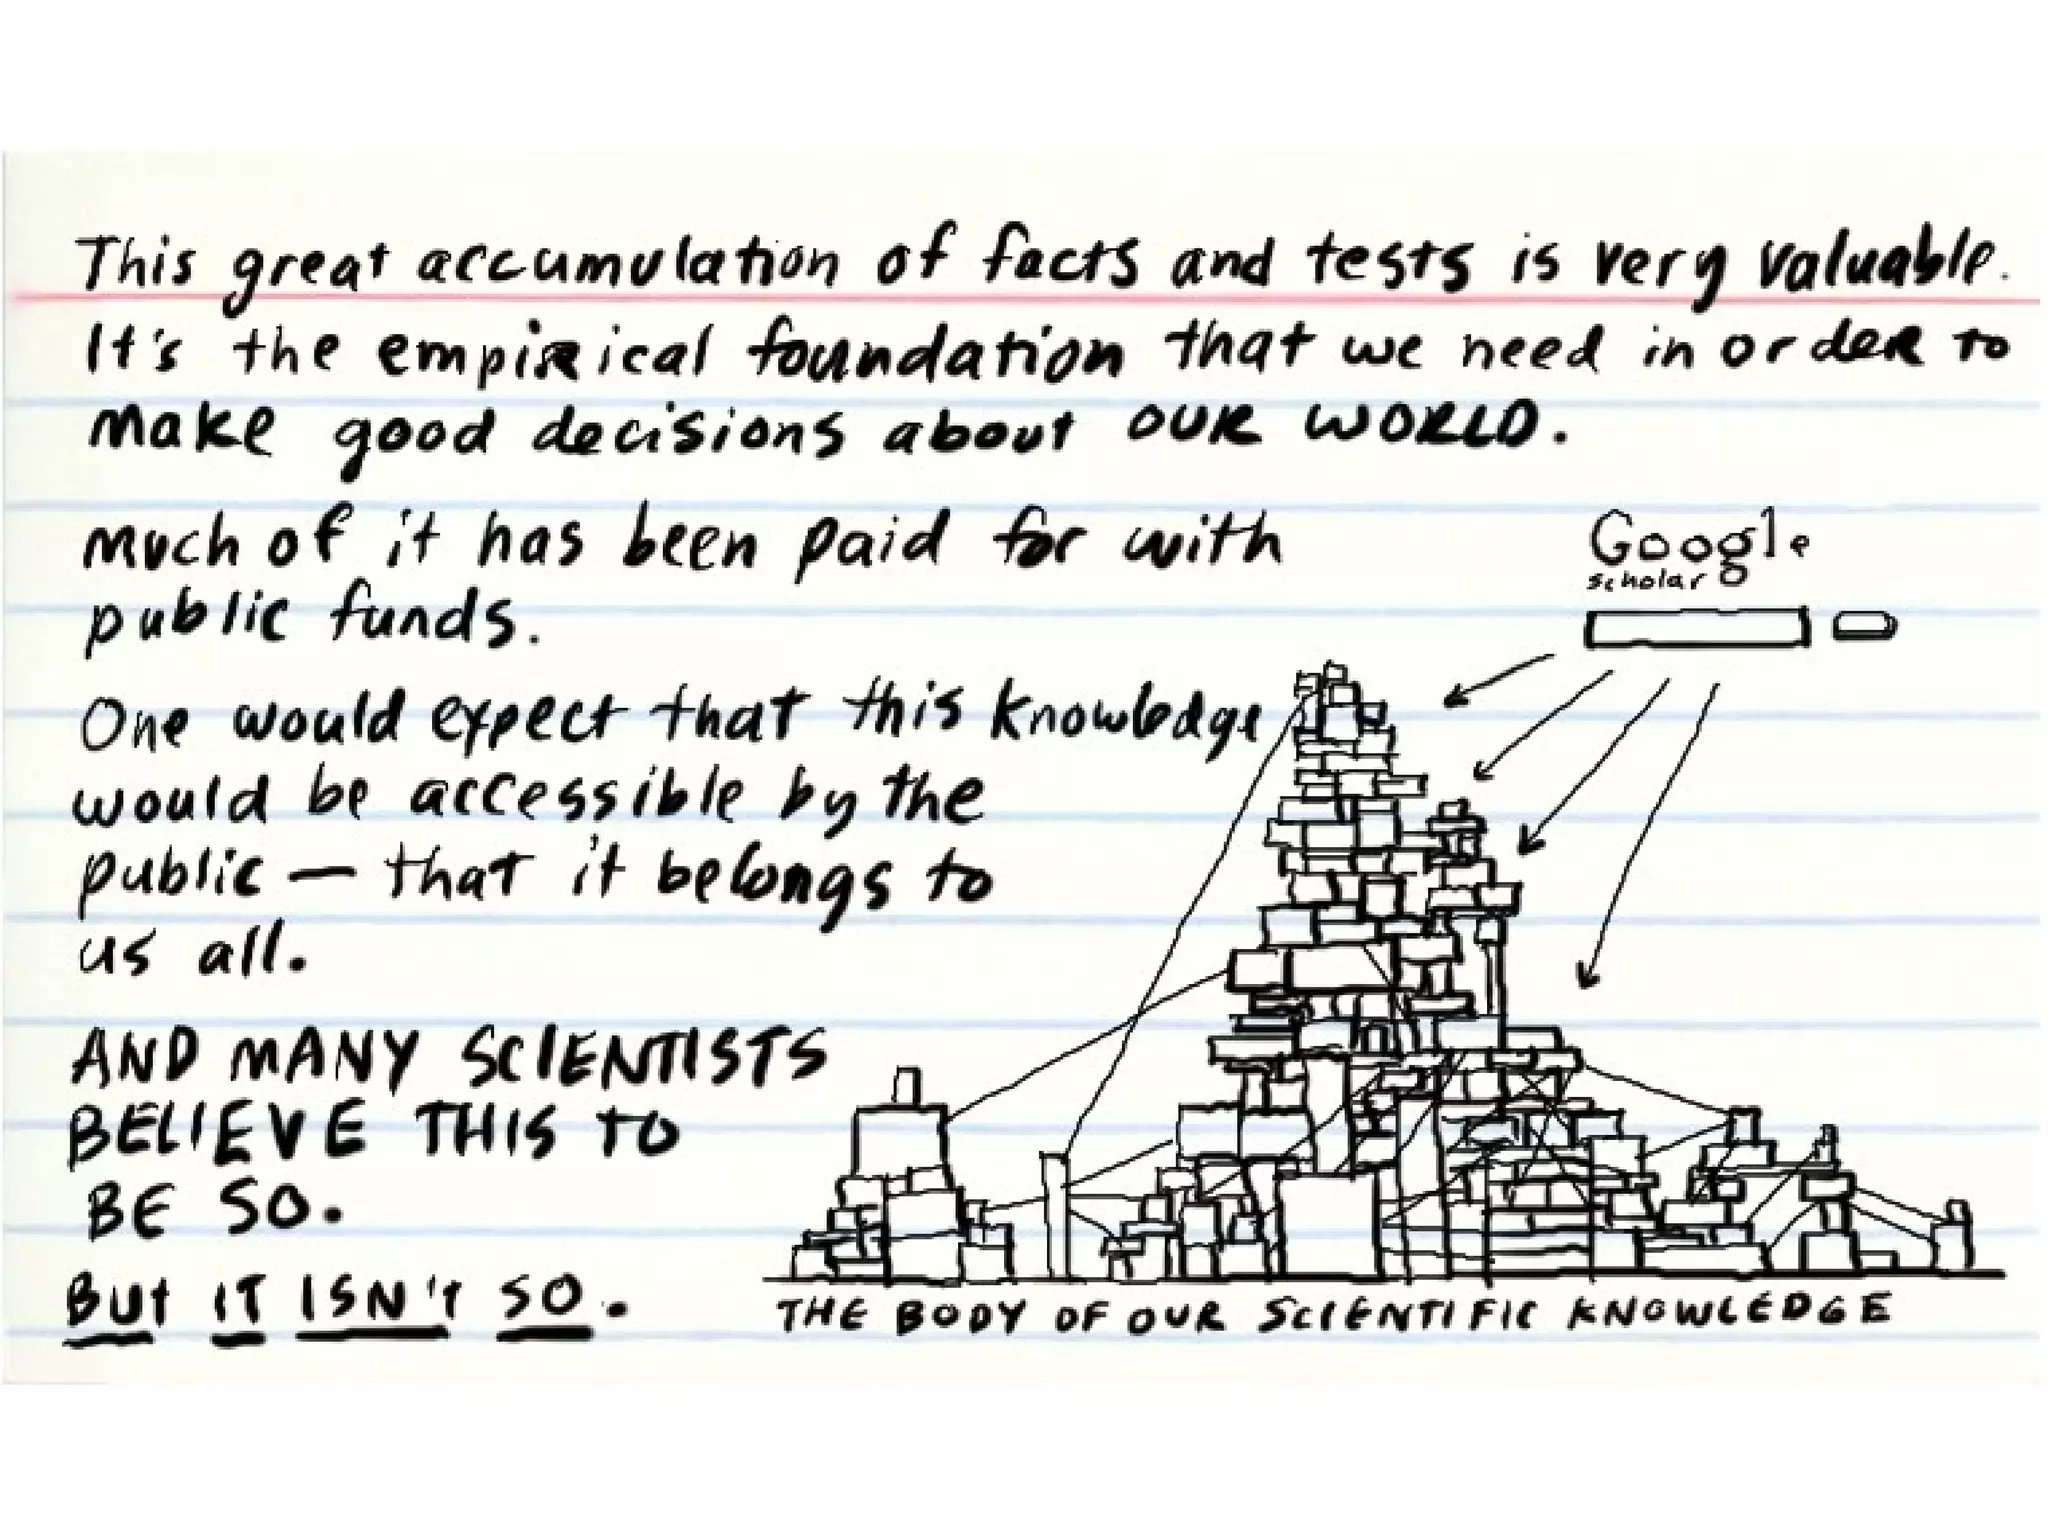 This great accumulation of facts and tests is very valuable.
It's the empirical foundation that we need in order to
make good decisions about OUR WORLD.
much of it has been paid for with
public funds.
Google
scholar
One would expect that this knowledge
would be accessible by the
public — that it belongs to
us all.
AND MANY SCIENTISTS
BELIEVE THIS TO
BE SO.
But IT ISN'T SO.
THE BODY OF OUR SCIENTIFIC KNOWLEDGE